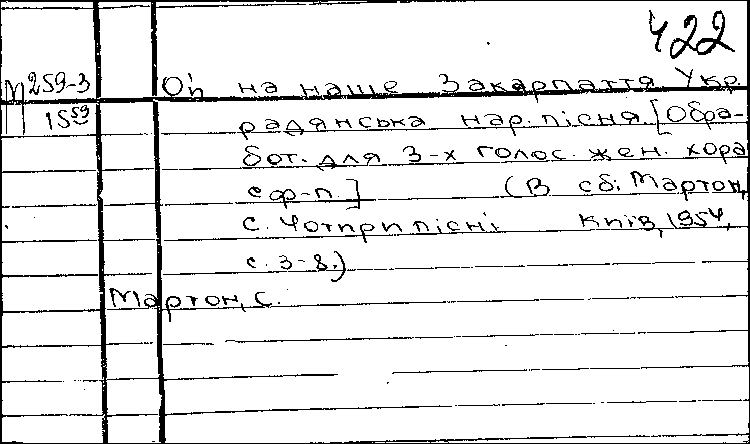 422
М 259-3
1559
Ой на наше Закарпаття Укр.
радянська нар. пісня. [Обра-
бот. для 3-х голос. жен. хора
с ф-п.] (В сб: Мартон,
С. Чотири пісні. Київ, 1954,
с. 3-8.)
Мартон, С.